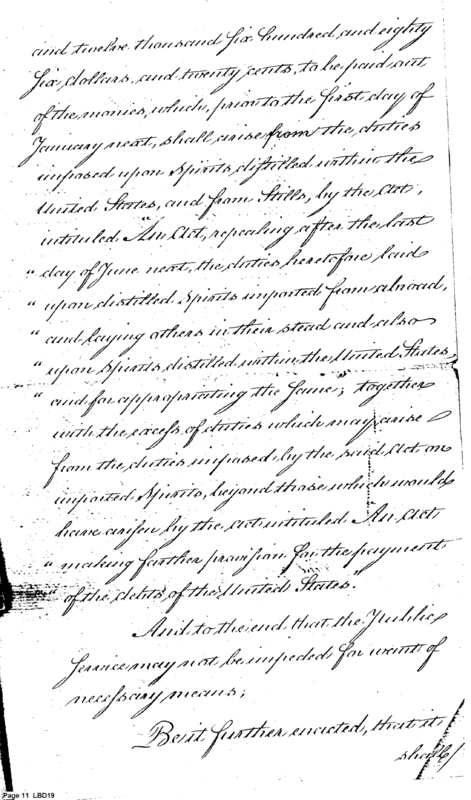 and twelve thousand six hundred and eighty
six dollars, and twenty cents, to be paid out
of the monies, which, prior to the first day of
January next, shall arise from the duties
imposed upon Spirits distilled within the
United States, and from Stills, by the Act,
intituled "An Act, repealing after the last
" day of June next, the duties heretofore laid
" upon distilled Spirits imported from abroad,
" and laying others in their stead and also
" upon Spirits distilled within the United States,
" and for appropriating the same"; together
with the excess of duties which may arise
from the duties imposed by the said Act on
imported Spirits, beyond those which would
have arisen by the Act intituled "An Act
" making farther provision for the payment
" of the debts of the United States."
And to the end that the Public
service may not be impeded for want of
necessary means;
Be it further enacted, that it
shall
Page 11 LBD19